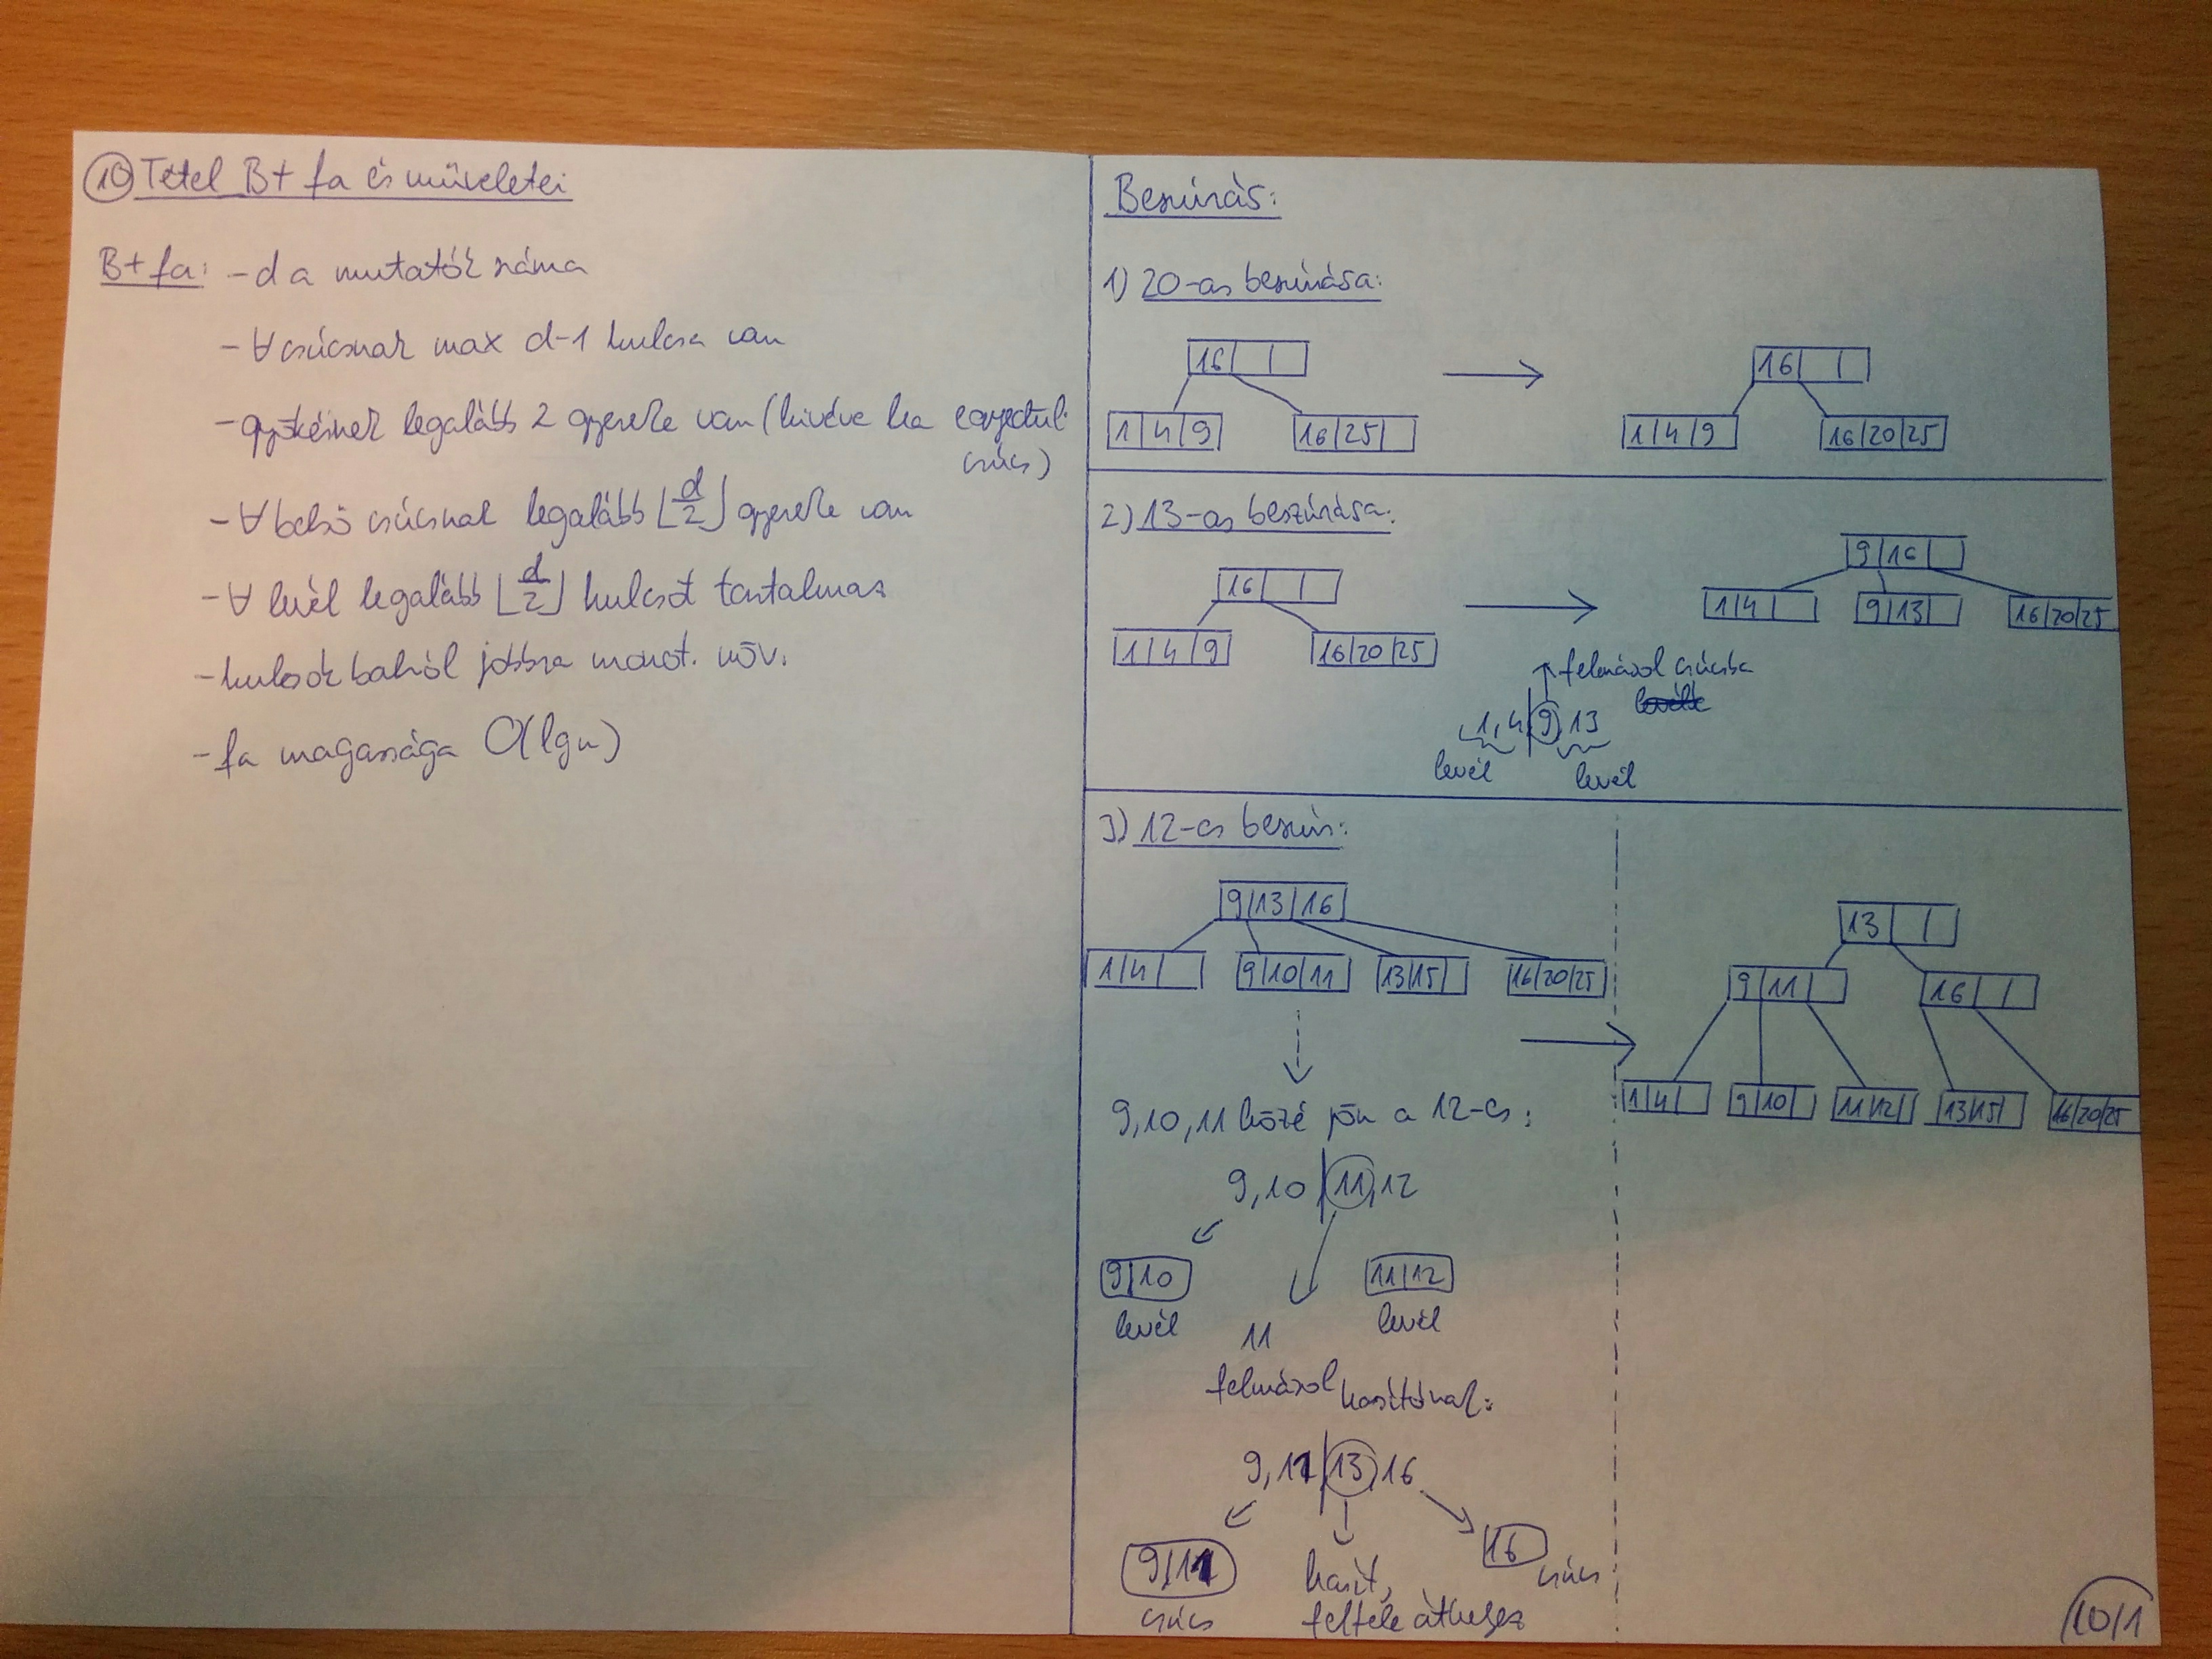 10 Tétel B+ fa és műveletei
B+ fa: - d a mutatók száma
- ∀ csúcsnak max d-1 kulcsa van
- gyökérnek legalább 2 gyereke van (kivéve ha egyedüli
csúcs)
- ∀ belső csúcsnak legalább ⌊d/2⌋ gyereke van
- ∀ levél legalább ⌊d/2⌋ kulcsot tartalmaz
- kulcsok balról jobbra monot. növ.
- fa magassága O(lgn)
Beszúrás:
1) 20-as beszúrása:
16 | | → 16 | |
1|4|9 16|25| 1|4|9 16|20|25
2) 13-as beszúrása:
9|16|
16 | | → 1|4| 9|13| 16|20|25
1|4|9 16|20|25
felmásol csúcsba
1,4|9,13
levél levél
3) 12-es beszúr:
9|13|16
1|4| 9|10|11 13|15| 16|20|25
9,10,11 közé jön a 12-es:
9,10|11,12
9|10 11|12
levél 11 levél
felmásol hasítónak:
9,11|13,16
9|11 16
csúcs hasít, csúcs
felfele áthelyez
→
13 | |
9|11| 16| |
1|4| 9|10| 11|12| 13|15| 16|20|25
10/1